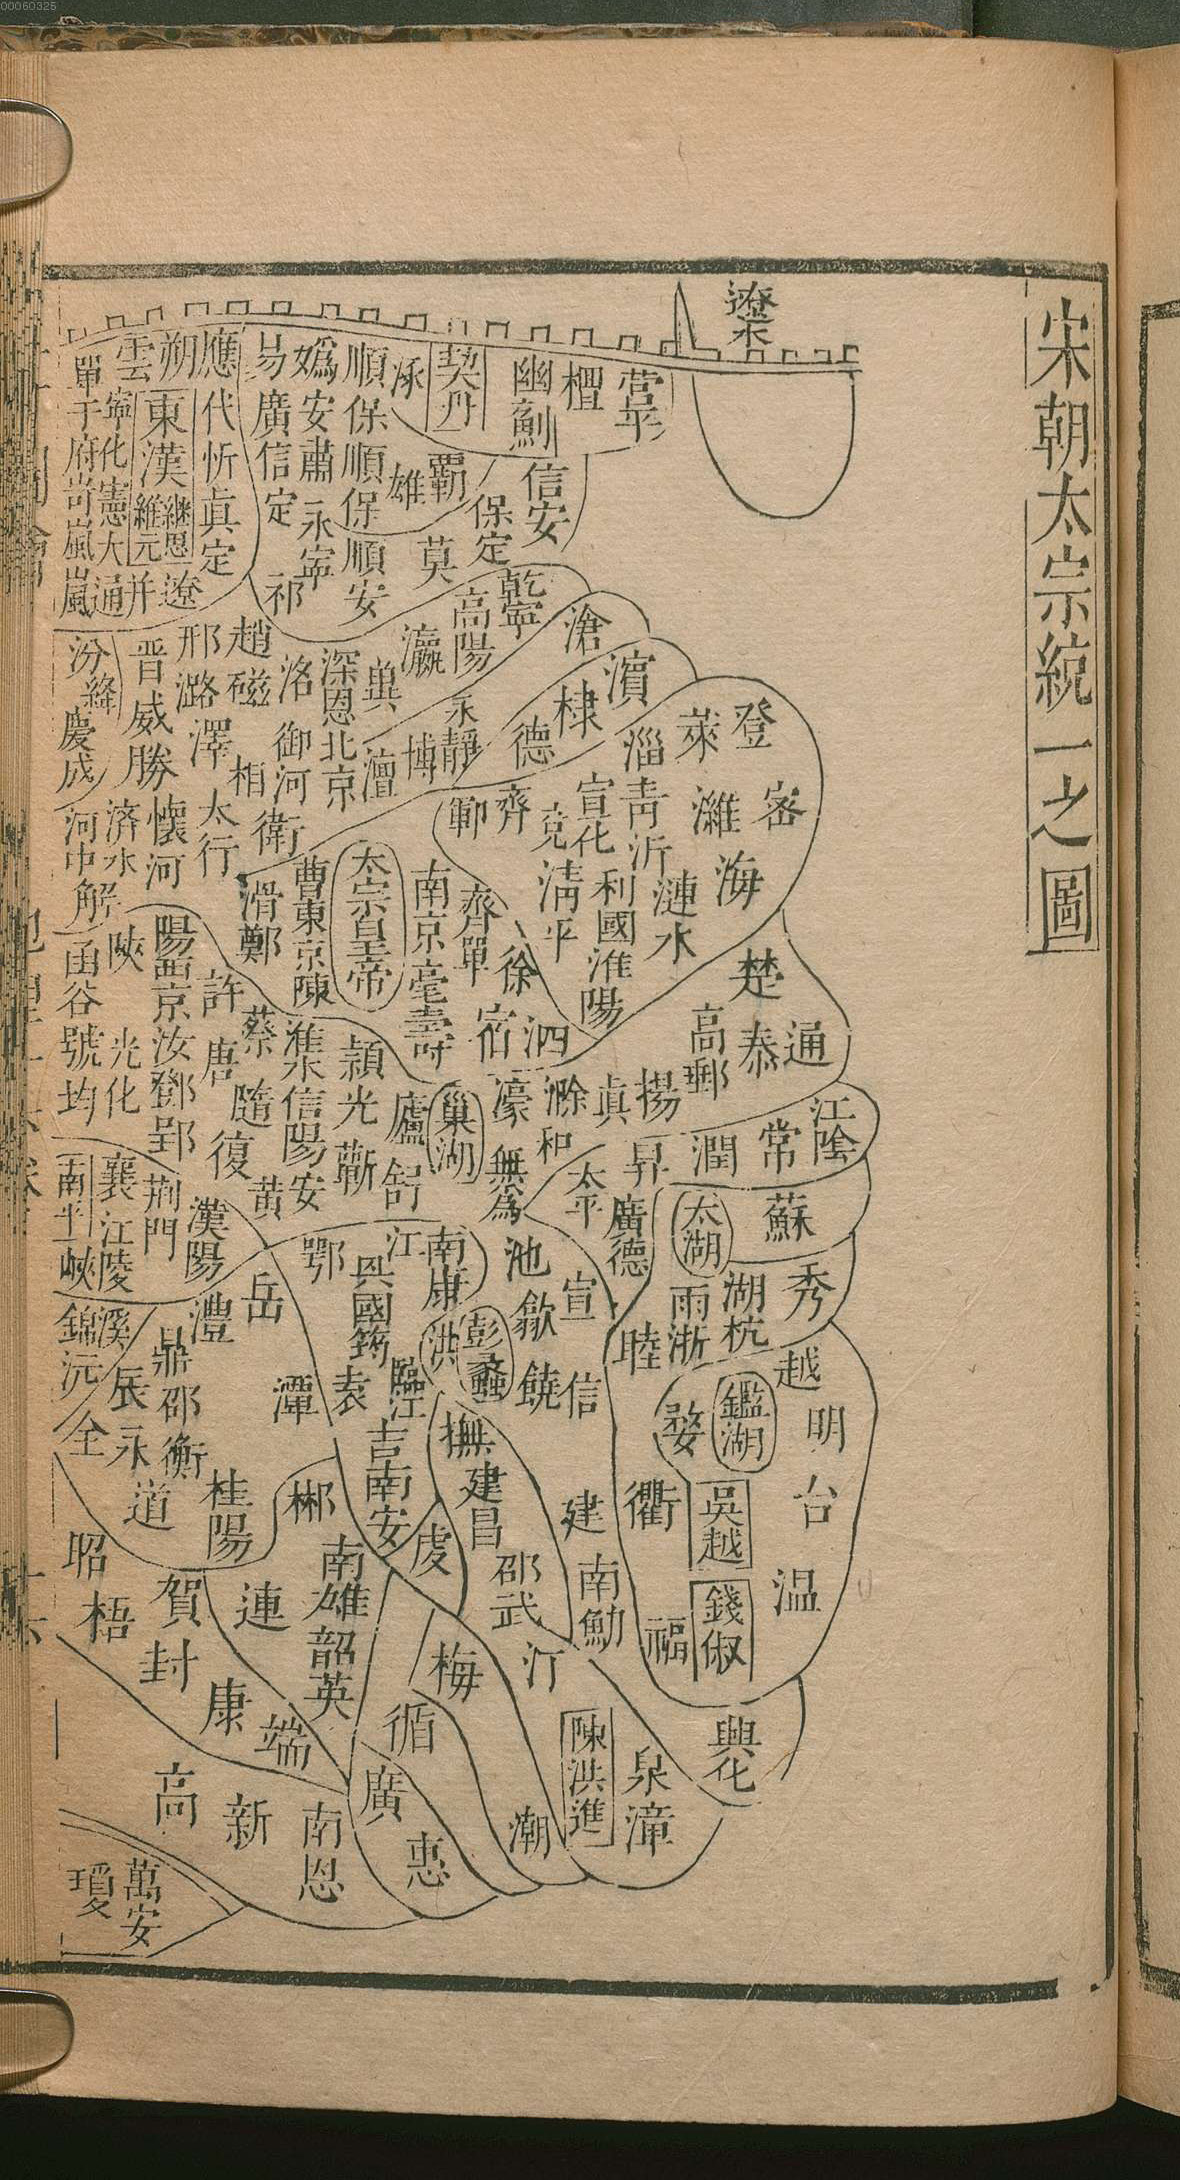 00060325
宋朝太宗統一之圖
遼水
營平
檀
幽薊
契丹
涿
順保順保順安
媯安肅永寧
易廣信定
祁
應代忻真定
朔
雲
東漢
繼恩
維元
寧化憲大通
單于府岢嵐嵐
并遼
信安
保定
霸
雄
莫
乾寧
高陽
瀛
冀
深恩北京
洺御河
趙磁相
邢潞澤太行
晋威勝
汾絳
慶成
滄
永靜
博
澶
濱
棣
德
衛
懷河
濟水
河中解
登
萊
密
濰
海
淄青沂
漣水
宣化
利國
淮陽
兗
清平
齊
鄆
太宗皇帝
南京亳壽
濟單
徐
宿
泗
曹東京陳
滑鄭
許
蔡
唐
陽西京汝鄧郢
陝
光化
函谷虢均
楚
高郵
泰
通
揚
真
滁
和
濠
無為
巢湖
廬
舒
潁光
蘄
淮水信陽安
隨
復
黄
漢陽
荆門
襄江陵
南平
峽
江陰
常
潤
昇
太平
廣德
蘇
太湖
秀
湖杭
兩浙
睦
池
宣
歙
饒
信
南康
江
彭蠡
洪
鄂
興國
筠
袁
臨江
吉南安
撫
建昌
虔
岳
澧
潭
鼎邵衡
辰永道
溪
錦沅
全
桂陽
郴
越
明
台
温
鑑湖
婺
衢
吳越
錢俶
福
建
南劎
邵武
汀
興化
泉
漳
陳洪進
潮
梅
循
廣
惠
南雄韶英
連
賀
封
康
端
昭
梧
高
新
南恩
萬安
瓊